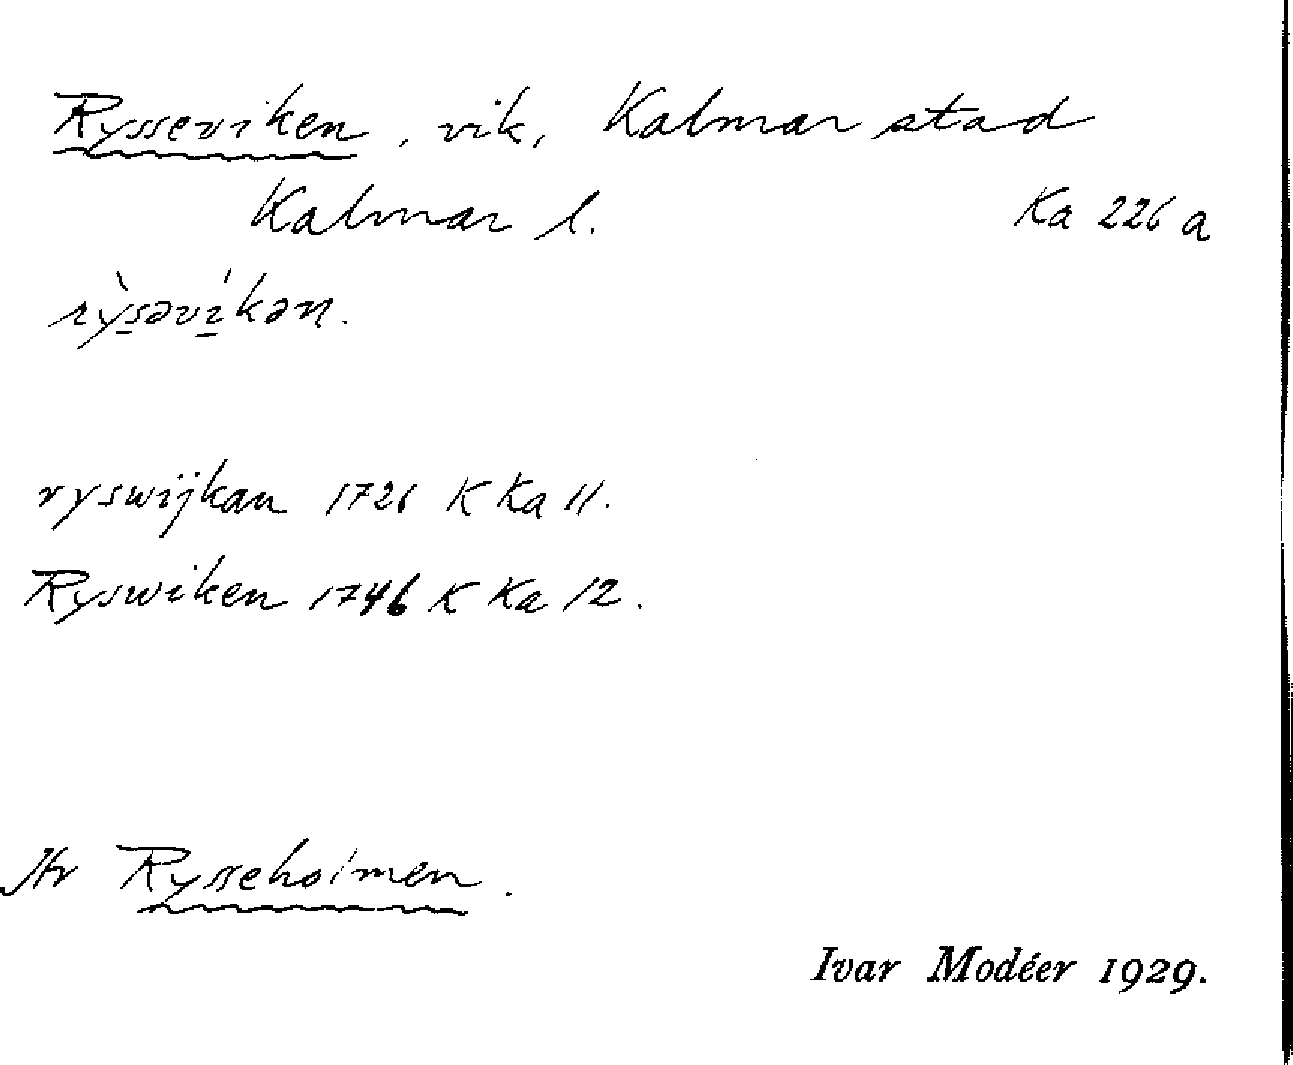 Rysseviken, vik, Kalmar stad
Kalmar l. Ka 226 a
rỳsəvíkən.
ryswijkan 1726 K Ka 11.
Ryswiken 1746 K Ka 12.
Jfr Rysseholmen.
Ivar Modéer 1929.